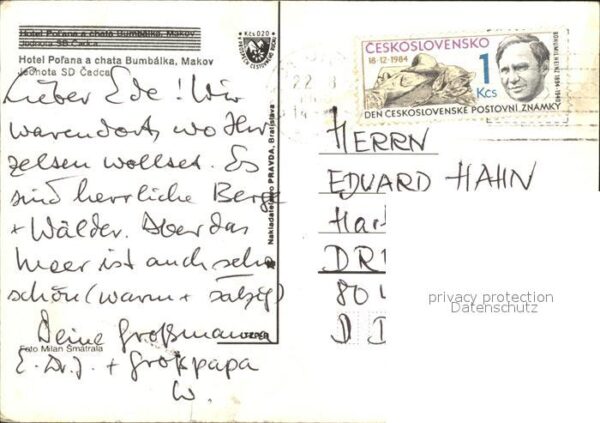 Hotel Poľana a chata Bumbálka, Makov
Jednota SD Čadca
Hotel Poľana a chata Bumbálka, Makov
Jednota SD Čadca
Kčs 0,20
Lieber Ede! Wir
waren dort, wo Ihr
zelten wolltet. Es
sind herrliche Berge
+ Wälder. Aber das
Meer ist auch sehr
schön (warm + salzig)
Deine Großmama
E. + Großpapa
W.
Foto Milan Smatrala
Nakladateľstvo PRAVDA, Bratislava
ČESKOSLOVENSKO
18·12·1984
1
Kčs
BOHUMIL HEINZ 1894-1940
DEN ČESKOSLOVENSKÉ POŠTOVNÍ ZNÁMKY
HERRN
EDUARD HAHN
privacy protection
Datenschutz